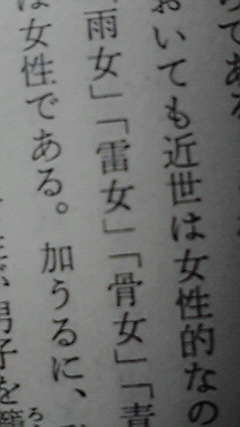 けである
おいても近世は女性的なの
雨女」「雷女」「骨女」「青
は女性である。加うるに、
男子を籠
ろう